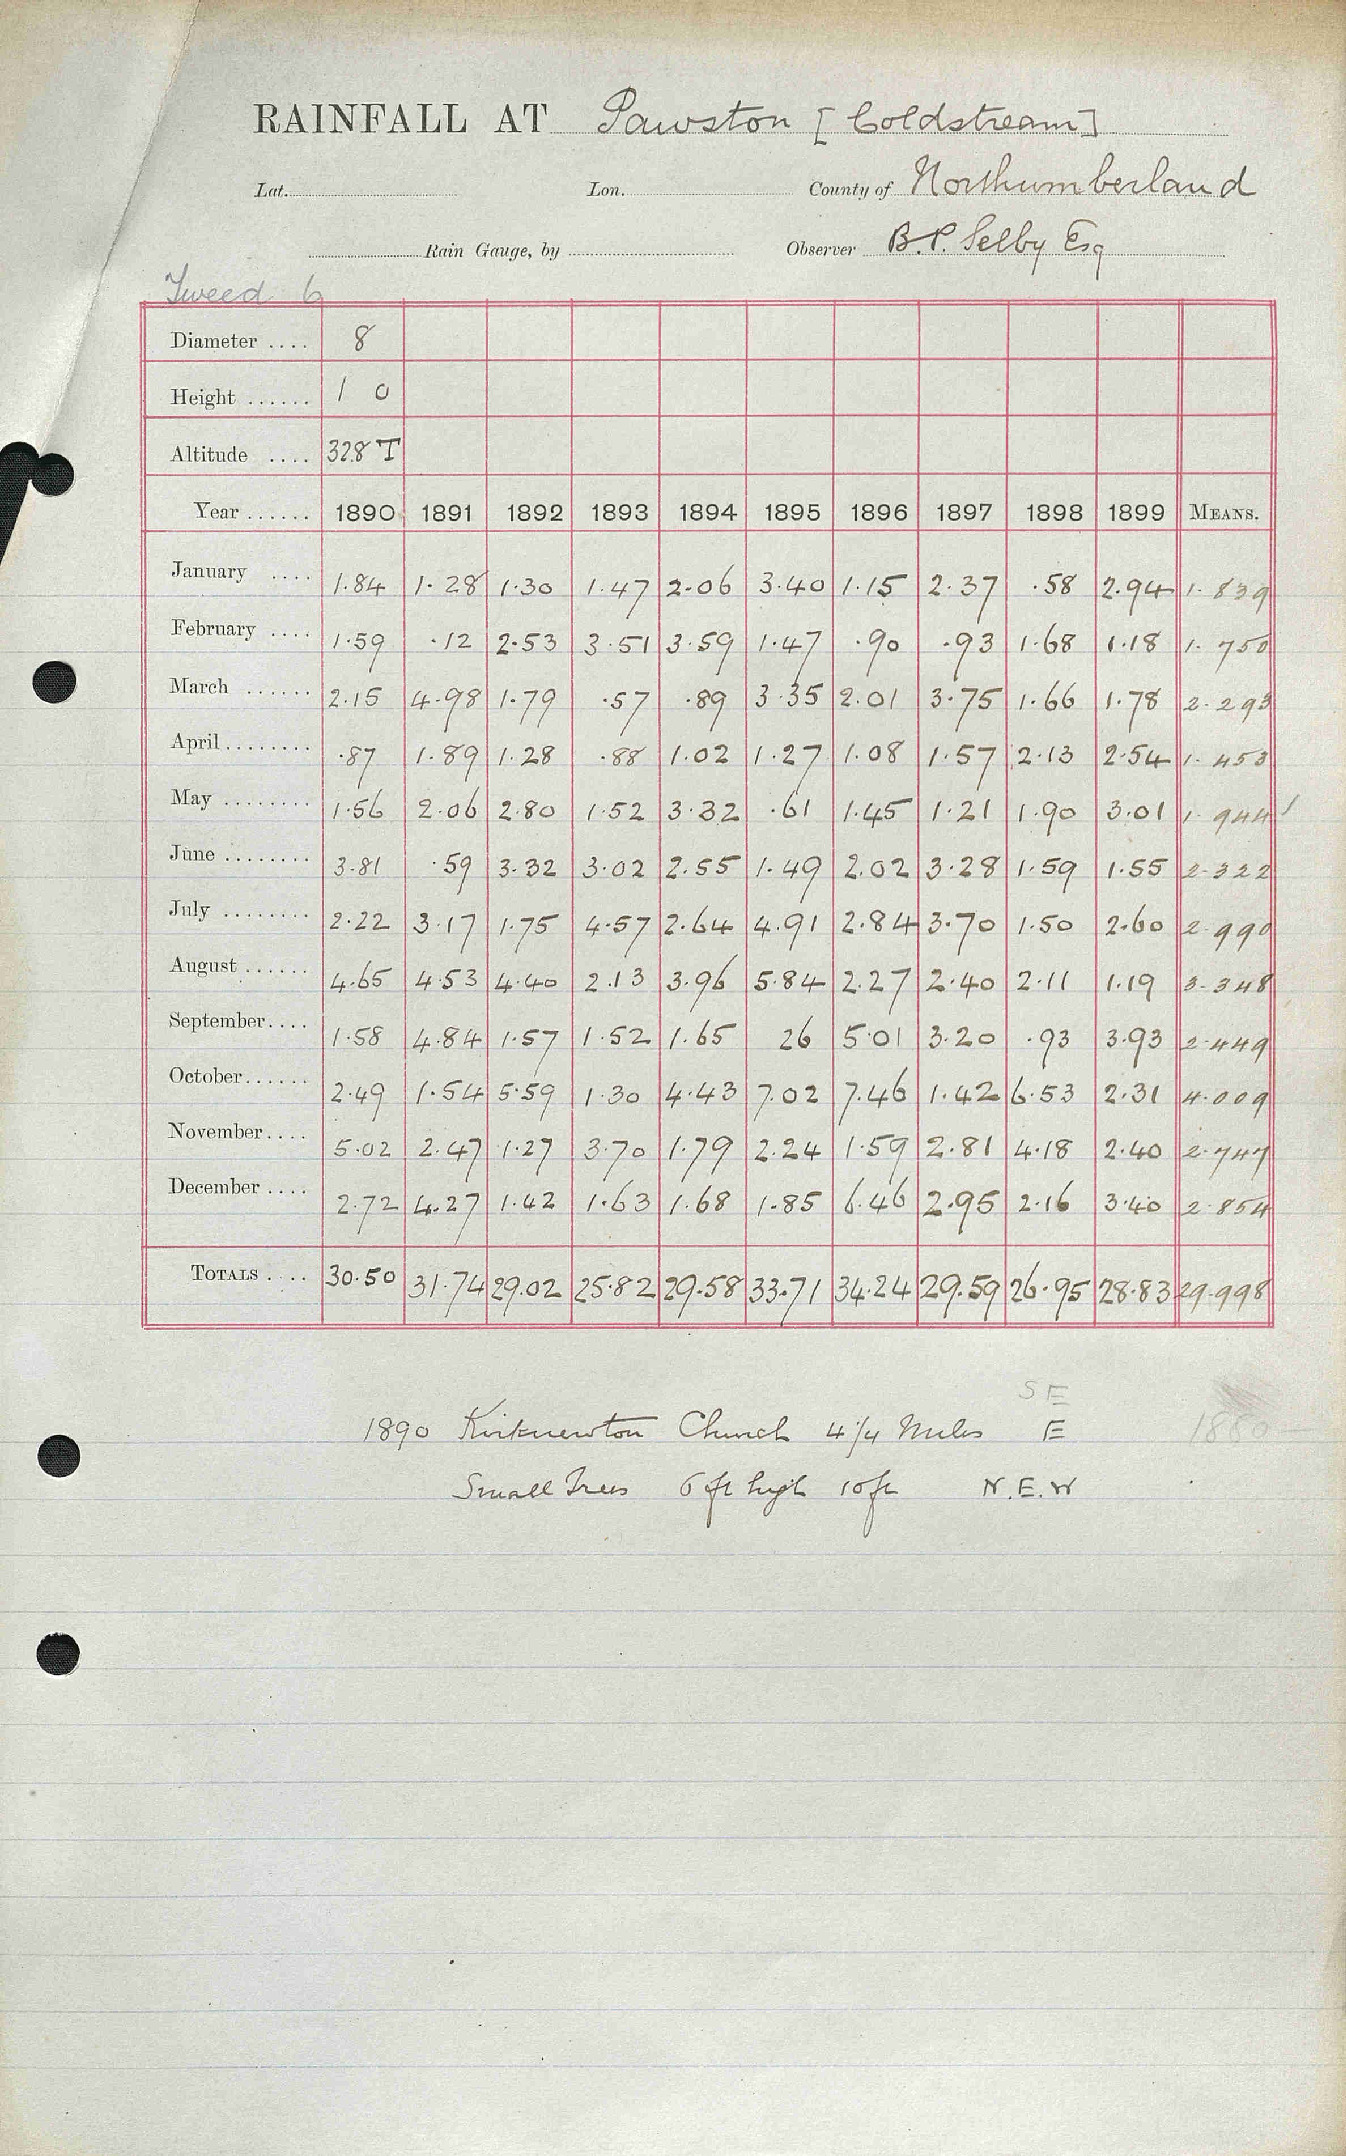 RAINFALL AT Pawston [Coldstream]
Lat. Lon. County of Northumberland
Rain Gauge, by Observer B.P. Selby Esq
Tweed 6
Diameter .... 8
Height ...... 1 0
Altitude .... 328 T
Year ...... 1890 1891 1892 1893 1894 1895 1896 1897 1898 1899 MEANS.
January .... 1.84 1.28 1.30 1.47 2.06 3.40 1.15 2.37 .58 2.94 1.839
February .... 1.59 .12 2.53 3.51 3.59 1.47 .90 .93 1.68 1.18 1.750
March ...... 2.15 4.98 1.79 .57 .89 3.35 2.01 3.75 1.66 1.78 2.293
April ........ .87 1.89 1.28 .88 1.02 1.27 1.08 1.57 2.13 2.54 1.453
May ........ 1.56 2.06 2.80 1.52 3.32 .61 1.45 1.21 1.90 3.01 1.944
June ........ 3.81 .59 3.32 3.02 2.55 1.49 2.02 3.28 1.59 1.55 2.322
July ........ 2.22 3.17 1.75 4.57 2.64 4.91 2.84 3.70 1.50 2.60 2.990
August ...... 4.65 4.53 4.40 2.13 3.96 5.84 2.27 2.40 2.11 1.19 3.348
September.... 1.58 4.84 1.57 1.52 1.65 26 5.01 3.20 .93 3.93 2.449
October...... 2.49 1.54 5.59 1.30 4.43 7.02 7.46 1.42 6.53 2.31 4.009
November.... 5.02 2.47 1.27 3.70 1.79 2.24 1.59 2.81 4.18 2.40 2.747
December .... 2.72 4.27 1.42 1.63 1.68 1.85 6.46 2.95 2.16 3.40 2.854
TOTALS .... 30.50 31.74 29.02 25.82 29.58 33.71 34.24 29.59 26.95 28.83 29.998
SE
1890 Kirknewton Church 4 1/4 Miles E 1880 —
Small Trees 6 ft high 10 ft N.E.W